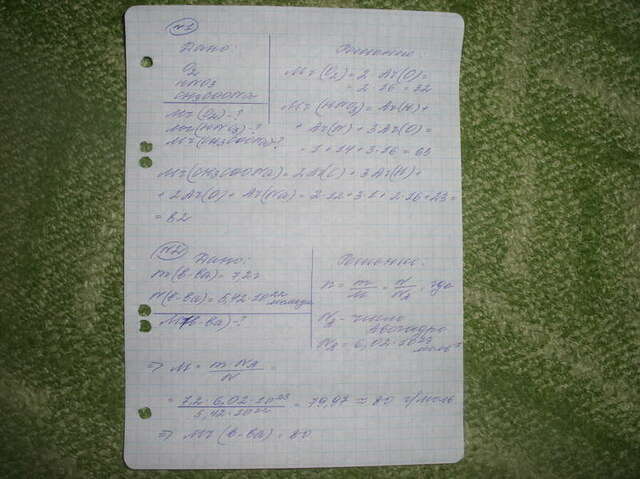 №1
Дано:
O2
HNO3
CH3COONa
Mr(O2)-?
Mr(HNO3)-?
Mr(CH3COONa)?
Решение:
Mr(O2)=2·Ar(O)=
=2·16=32
Mr(HNO3)=Ar(H)+
+Ar(N)+3Ar(O)=
=1+14+3·16=63
Mr(CH3COONa)=2Ar(C)+3Ar(H)+
+2Ar(O)+Ar(Na)=2·12+3·1+2·16+23=
=82
№2
Дано:
m(в-ва)=7,2г
N(в-ва)=5,42·10^22
молекул
M(в-ва)-?
Решение:
n=m/M=N/NA, где
NA-число
Авогадро
NA=6,02·10^23
моль^-1
=> M=m·NA/N=
=7,2·6,02·10^23/5,42·10^22=79,97≈80 г/моль
=> Mr(в-ва)=80